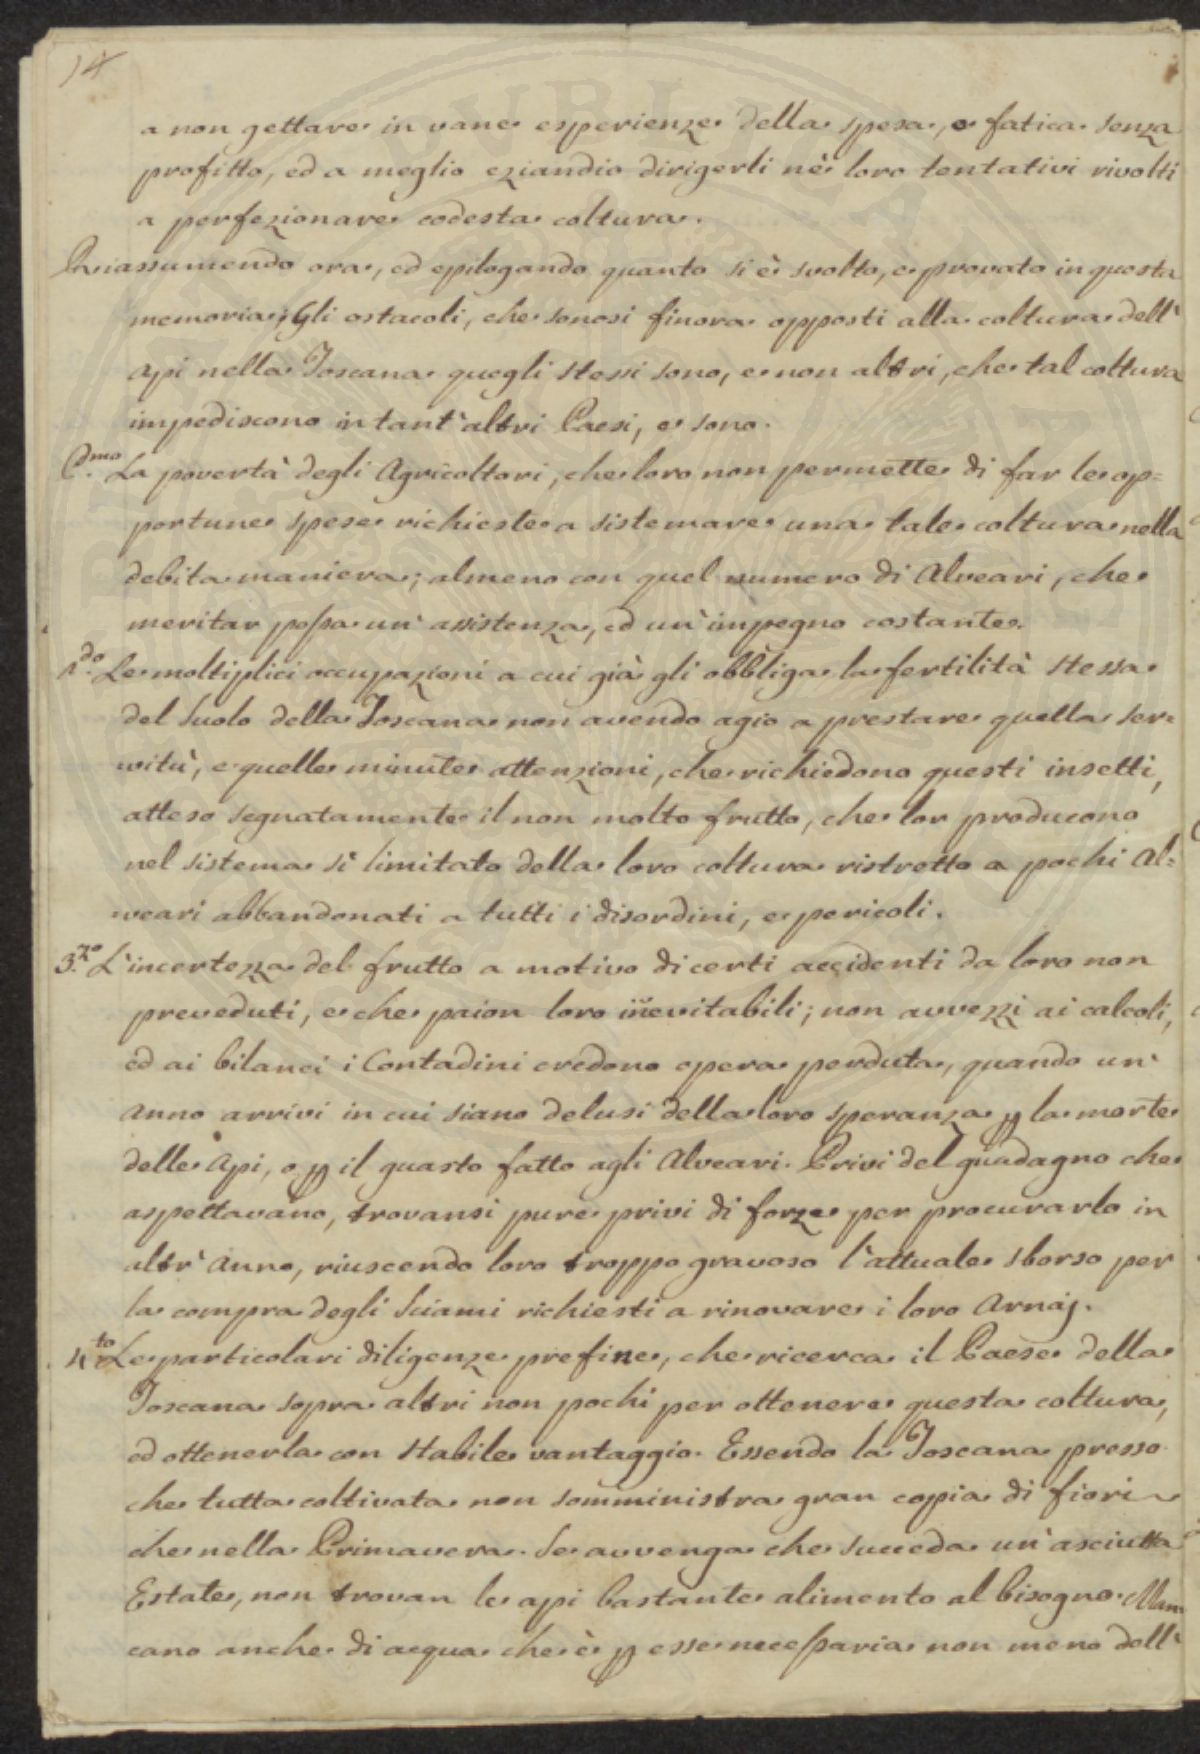 14
a non gettare in vane esperienze della spesa, e fatica senza
profitto, ed a meglio eziandio dirigerli nè loro tentativi rivolti
a perfezionare codesta coltura.
Riassumendo ora, ed epilogando quanto si è svolto, e provato in questa
memoria; Gli ostacoli, che sonosi finora opposti alla coltura dell'
Api nella Toscana quegli stessi sono, e non altri, che tal coltura
impediscono in tant'altri Paesi, e sono.
P.mo La povertà degli Agricoltori, che loro non permette di far le op=
portune spese richieste a sistemare una tale coltura nella
debita maniera; almeno con quel numero di Alveari, che
meritar possa un'assistenza, ed un'impegno costante.
2.do Le moltiplici occupazioni a cui già gli obbliga la fertilità stessa
del Suolo della Toscana non avendo agio a prestare quella ser=
vitù, e quelle minute attenzioni, che richiedono questi insetti,
atteso segnatamente il non molto frutto, che lor producono
nel sistema sì limitato della loro coltura ristretto a pochi Al=
veari abbandonati a tutti i disordini, e pericoli.
3.zo L'incertezza del frutto a motivo di certi accidenti da loro non
preveduti, e che paion loro inevitabili; non avvezzi ai calcoli,
ed ai bilanci i Contadini credono opera perduta, quando un'
Anno arrivi in cui siano delusi della loro speranza p la morte
delle Api, o p il guasto fatto agli Alveari. Privi del guadagno che
aspettavano, trovansi pure privi di forze per procurarlo in
altr'Anno, riuscendo loro troppo gravoso l'attuale sborso per
la compra degli Sciami richiesti a rinovare i loro Arnaj.
4.to Le particolari diligenze prefine, che ricerca il Paese della
Toscana sopra altri non pochi per ottenere questa coltura,
ed ottenerla con stabile vantaggio. Essendo la Toscana presso
che tutta coltivata non somministra gran copia di fiori
che nella Primavera. Se avvenga che succeda un'asciutta
Estate, non trovan le api bastante alimento al bisogno. Man
cano anche di acqua che è p esse necessaria non meno dell'